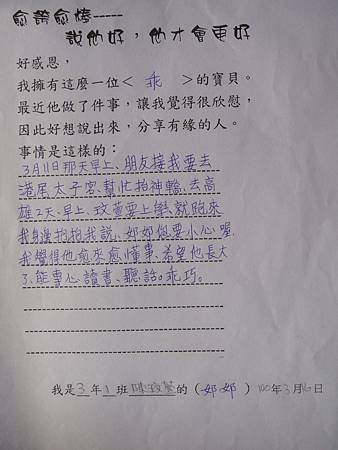 愈誇愈棒-----
說他好，他才會更好
好感恩，
我擁有這麼一位< 乖 >的寶貝。
最近他做了件事，讓我覺得很欣慰，
因此好想說出來，分享有緣的人。
事情是這樣的：
3月11日那天早上、朋友接我要去
港尾太子宮、幫忙抬神轎、去高
雄2天、早上、玟萱要上學、就跑來
我身邊拍拍我說、妳妳要小心喔
我覺得他愈來愈懂事、希望他長大
了、能專心讀書、聽話。乖巧。
我是3年1班陳玟萱的（ ）100年3月16日